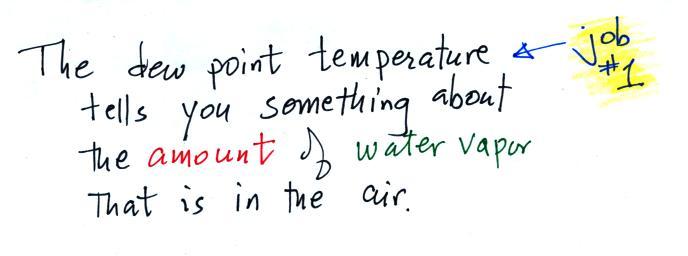 The dew point temperature
job
#1
tells you something about
the amount of water vapor
That is in the air.